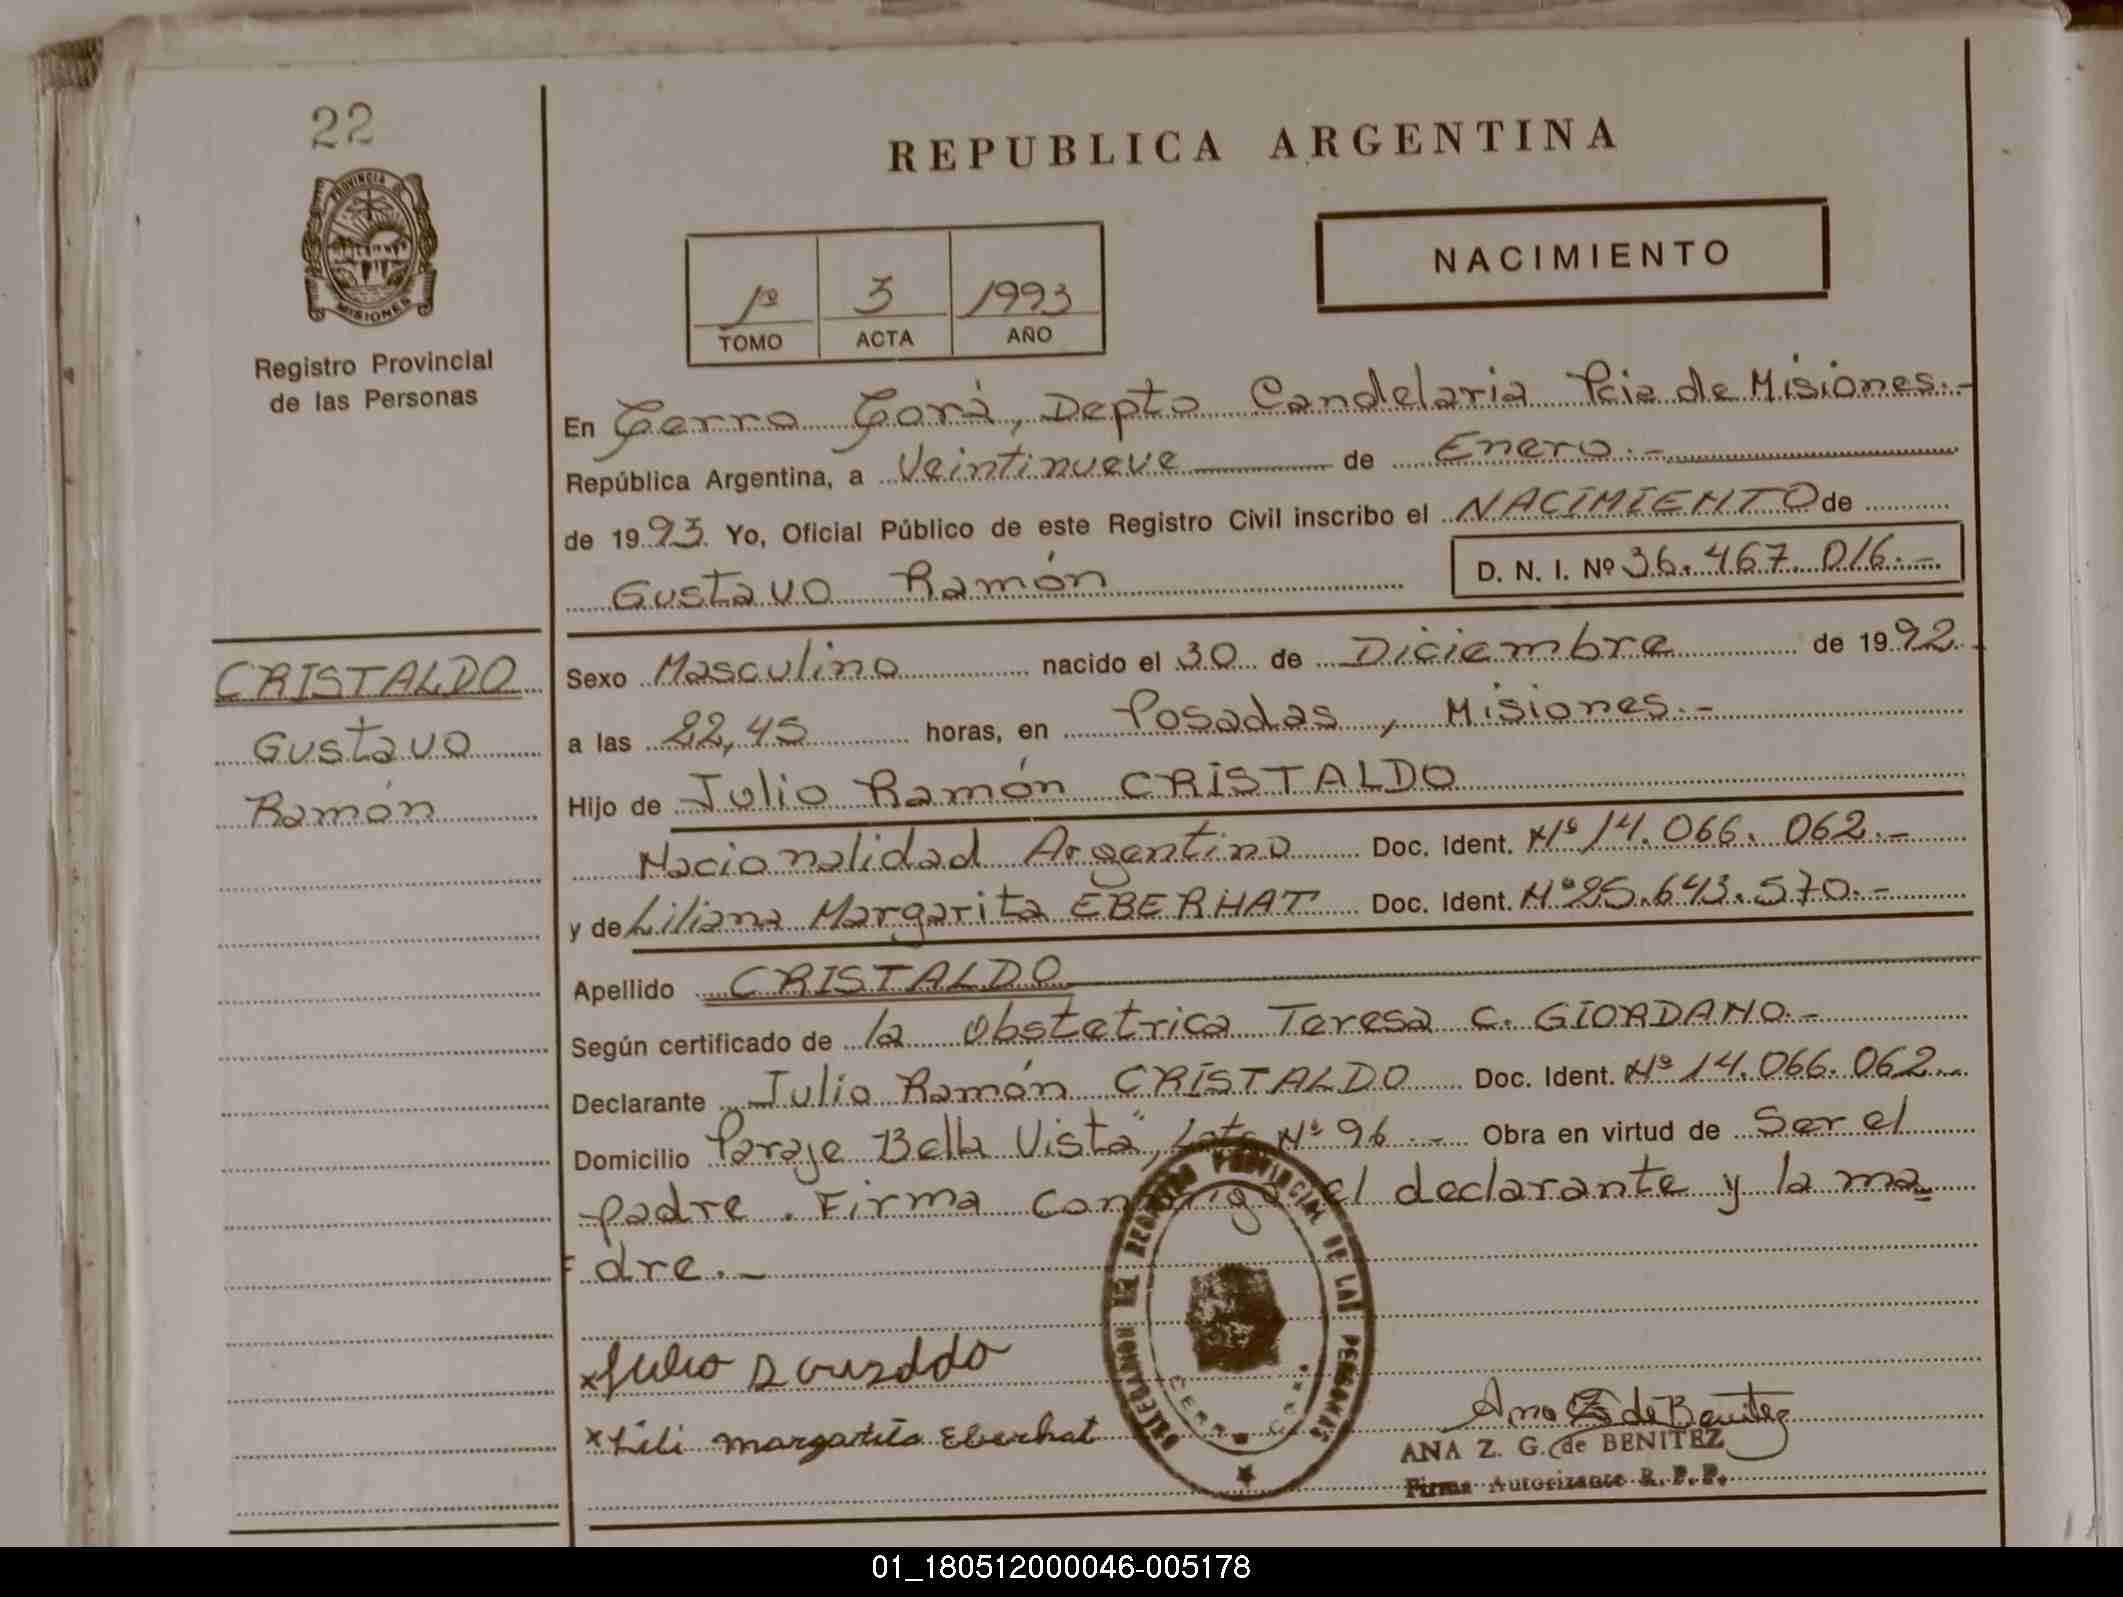 22
PROVINCIA DE
MISIONES
Registro Provincial
de las Personas
REPUBLICA ARGENTINA
NACIMIENTO
1º 3 1993
TOMO ACTA AÑO
En Cerro Corá, Depto Candelaria Pcia de Misiones.-
República Argentina, a Veintinueve de Enero.-
de 1993 Yo, Oficial Público de este Registro Civil inscribo el NACIMIENTO de
Gustavo Ramón D. N. I. Nº 36.467.016.-
CRISTALDO
Gustavo
Ramón
Sexo Masculino nacido el 30 de Diciembre de 1992.
a las 22,45 horas, en Posadas, Misiones.-
Hijo de Julio Ramón CRISTALDO
Nacionalidad Argentino Doc. Ident. Nº 14.066.062.-
y de Liliana Margarita EBERHAT Doc. Ident. Nº 25.643.570.-
Apellido CRISTALDO
Según certificado de la Obstetrica Teresa C. GIORDANO.-
Declarante Julio Ramón CRISTALDO Doc. Ident. Nº 14.066.062.-
Domicilio Paraje Bella Vista, Lote Nº 96.- Obra en virtud de Ser el
padre. Firma Conmigo el declarante y la ma-
dre.-
DELEGACION DEL REGISTRO PROVINCIAL DE LAS PERSONAS
CERRO CORA
x Julio
x Lili margarita Eberhat
Ana Z de Benitez
ANA Z. G. de BENITEZ
Firma Autorizante R. P. P.
01_180512000046-005178